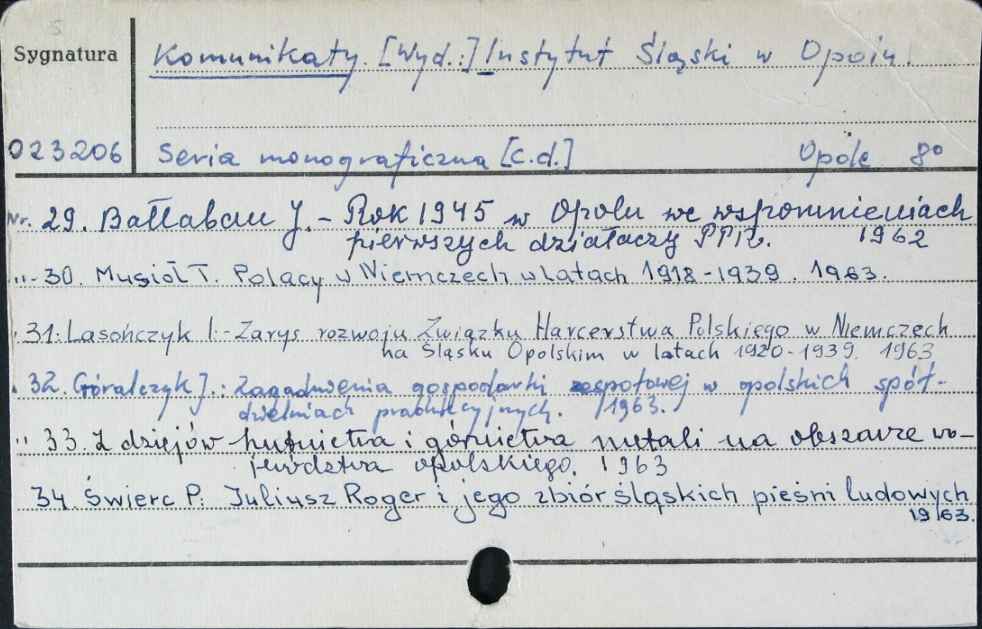 Sygnatura
Komunikaty. [Wyd.:] Instytut Śląski w Opolu.
023206 Seria monograficzna [c.d.] Opole 8°
Nr. 29. Bałłaban J. - Rok 1945 w Opolu we wspomnieniach
pierwszych działaczy PPR. 1962
"- 30. Musioł T. Polacy w Niemczech w latach 1918-1939. 1963.
" 31: Lasończyk I. - Zarys rozwoju Związku Harcerstwa Polskiego w Niemczech
na Śląsku Opolskim w latach 1920-1939. 1963
" 32. Góralczyk J.: Zagadnienia gospodarki zespołowej w opolskich spół-
dzielniach produkcyjnych. 1963.
" 33. Z dziejów hutnictwa i górnictwa metali na obszarze wo-
jewództwa opolskiego. 1963
34. Świerc P: Juliusz Roger i jego zbiór śląskich pieśni ludowych
1963.